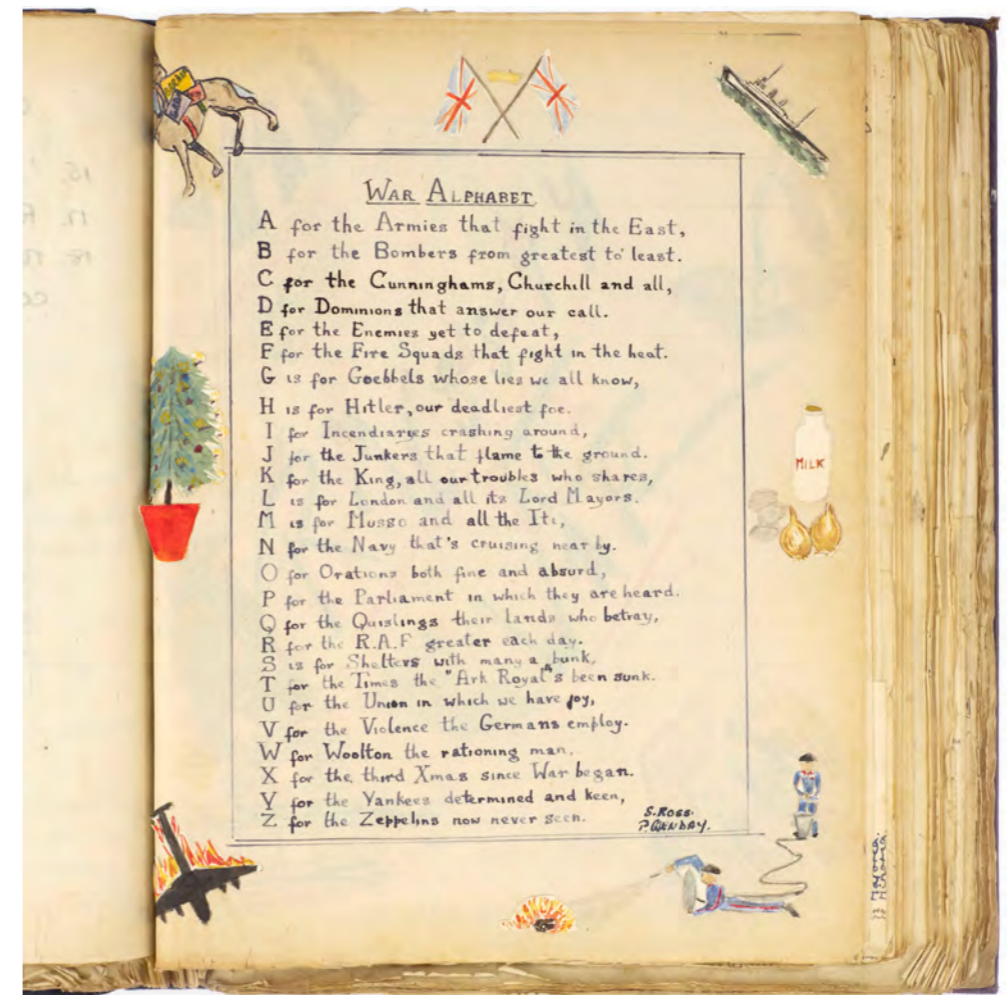 WAR ALPHABET
A for the Armies that fight in the East,
B for the Bombers from greatest to least.
C for the Cunninghams, Churchill and all,
D for Dominions that answer our call.
E for the Enemies yet to defeat,
F for the Fire Squads that fight in the heat.
G is for Goebbels whose lies we all know,
H is for Hitler, our deadliest foe.
I for Incendiaries crashing around,
J for the Junkers that flame to the ground.
K for the King, all our troubles who shares,
L is for London and all its Lord Mayors.
M is for Musso and all the Iti,
N for the Navy that's cruising near by.
O for Orations both fine and absurd,
P for the Parliament in which they are heard.
Q for the Quislings their lands who betray,
R for the R.A.F greater each day.
S is for Shelters with many a bunk,
T for the Times the "Ark Royal"s been sunk.
U for the Union in which we have joy,
V for the Violence the Germans employ.
W for Woolton the rationing man,
X for the third Xmas since War began.
Y for the Yankees determined and keen,
Z for the Zeppelins now never seen.
S. ROSS.
MILK